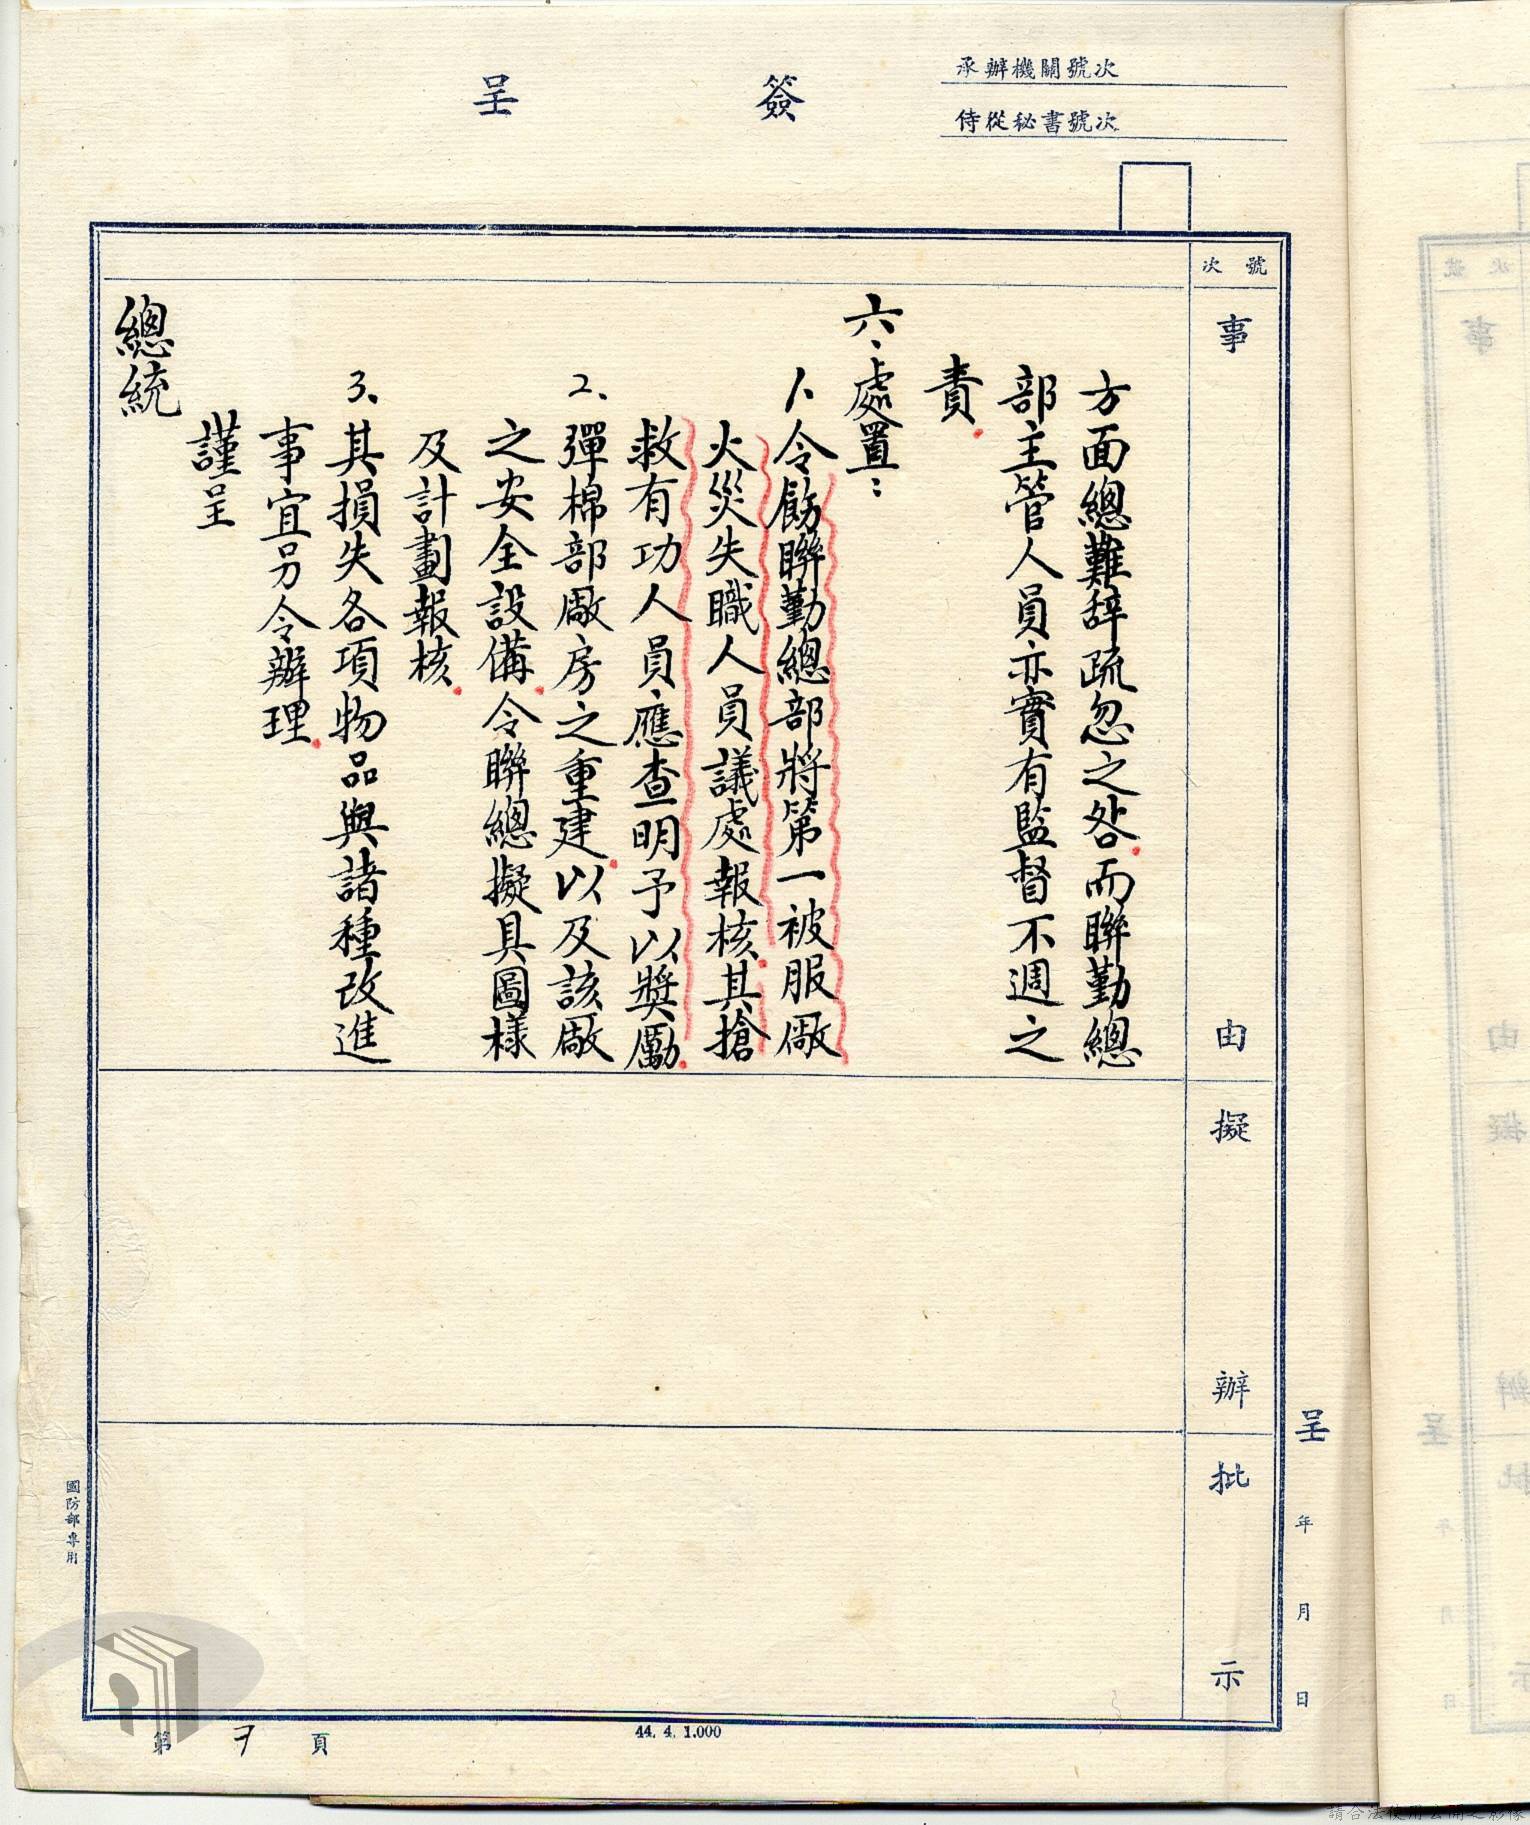 承辦機關號次
侍從秘書號次
簽呈
號次
事由
擬辦
批示
呈 年 月 日
方面總難辞疏忽之咎而聯勤總
部主管人員亦實有監督不週之
責
六、處置：
1、令飭聯勤總部將第一被服廠
火災失職人員議處報核其搶
救有功人員應查明予以獎勵
2、彈棉部廠房之重建以及該廠
之安全設備令聯總擬具圖樣
及計劃報核
3、其損失各項物品與諸種改進
事宜另令辦理
謹呈
總統
國防部專用
第 頁
44. 4. 1.000
請合法使用公開之影像